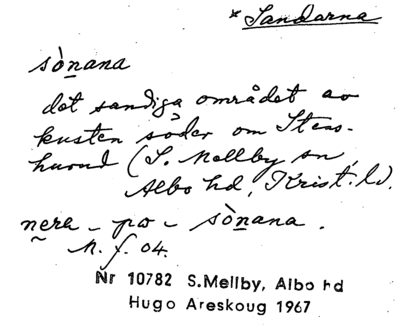 * Sandarna
sònana
det sandiga området av
kusten söder om Stens-
huvud (S. Mellby sn,
Albo hd, Krist. l.).
nera - pɒ - sònana.
M. f. 04.
Nr 10782 S.Mellby, Albo hd
Hugo Areskoug 1967